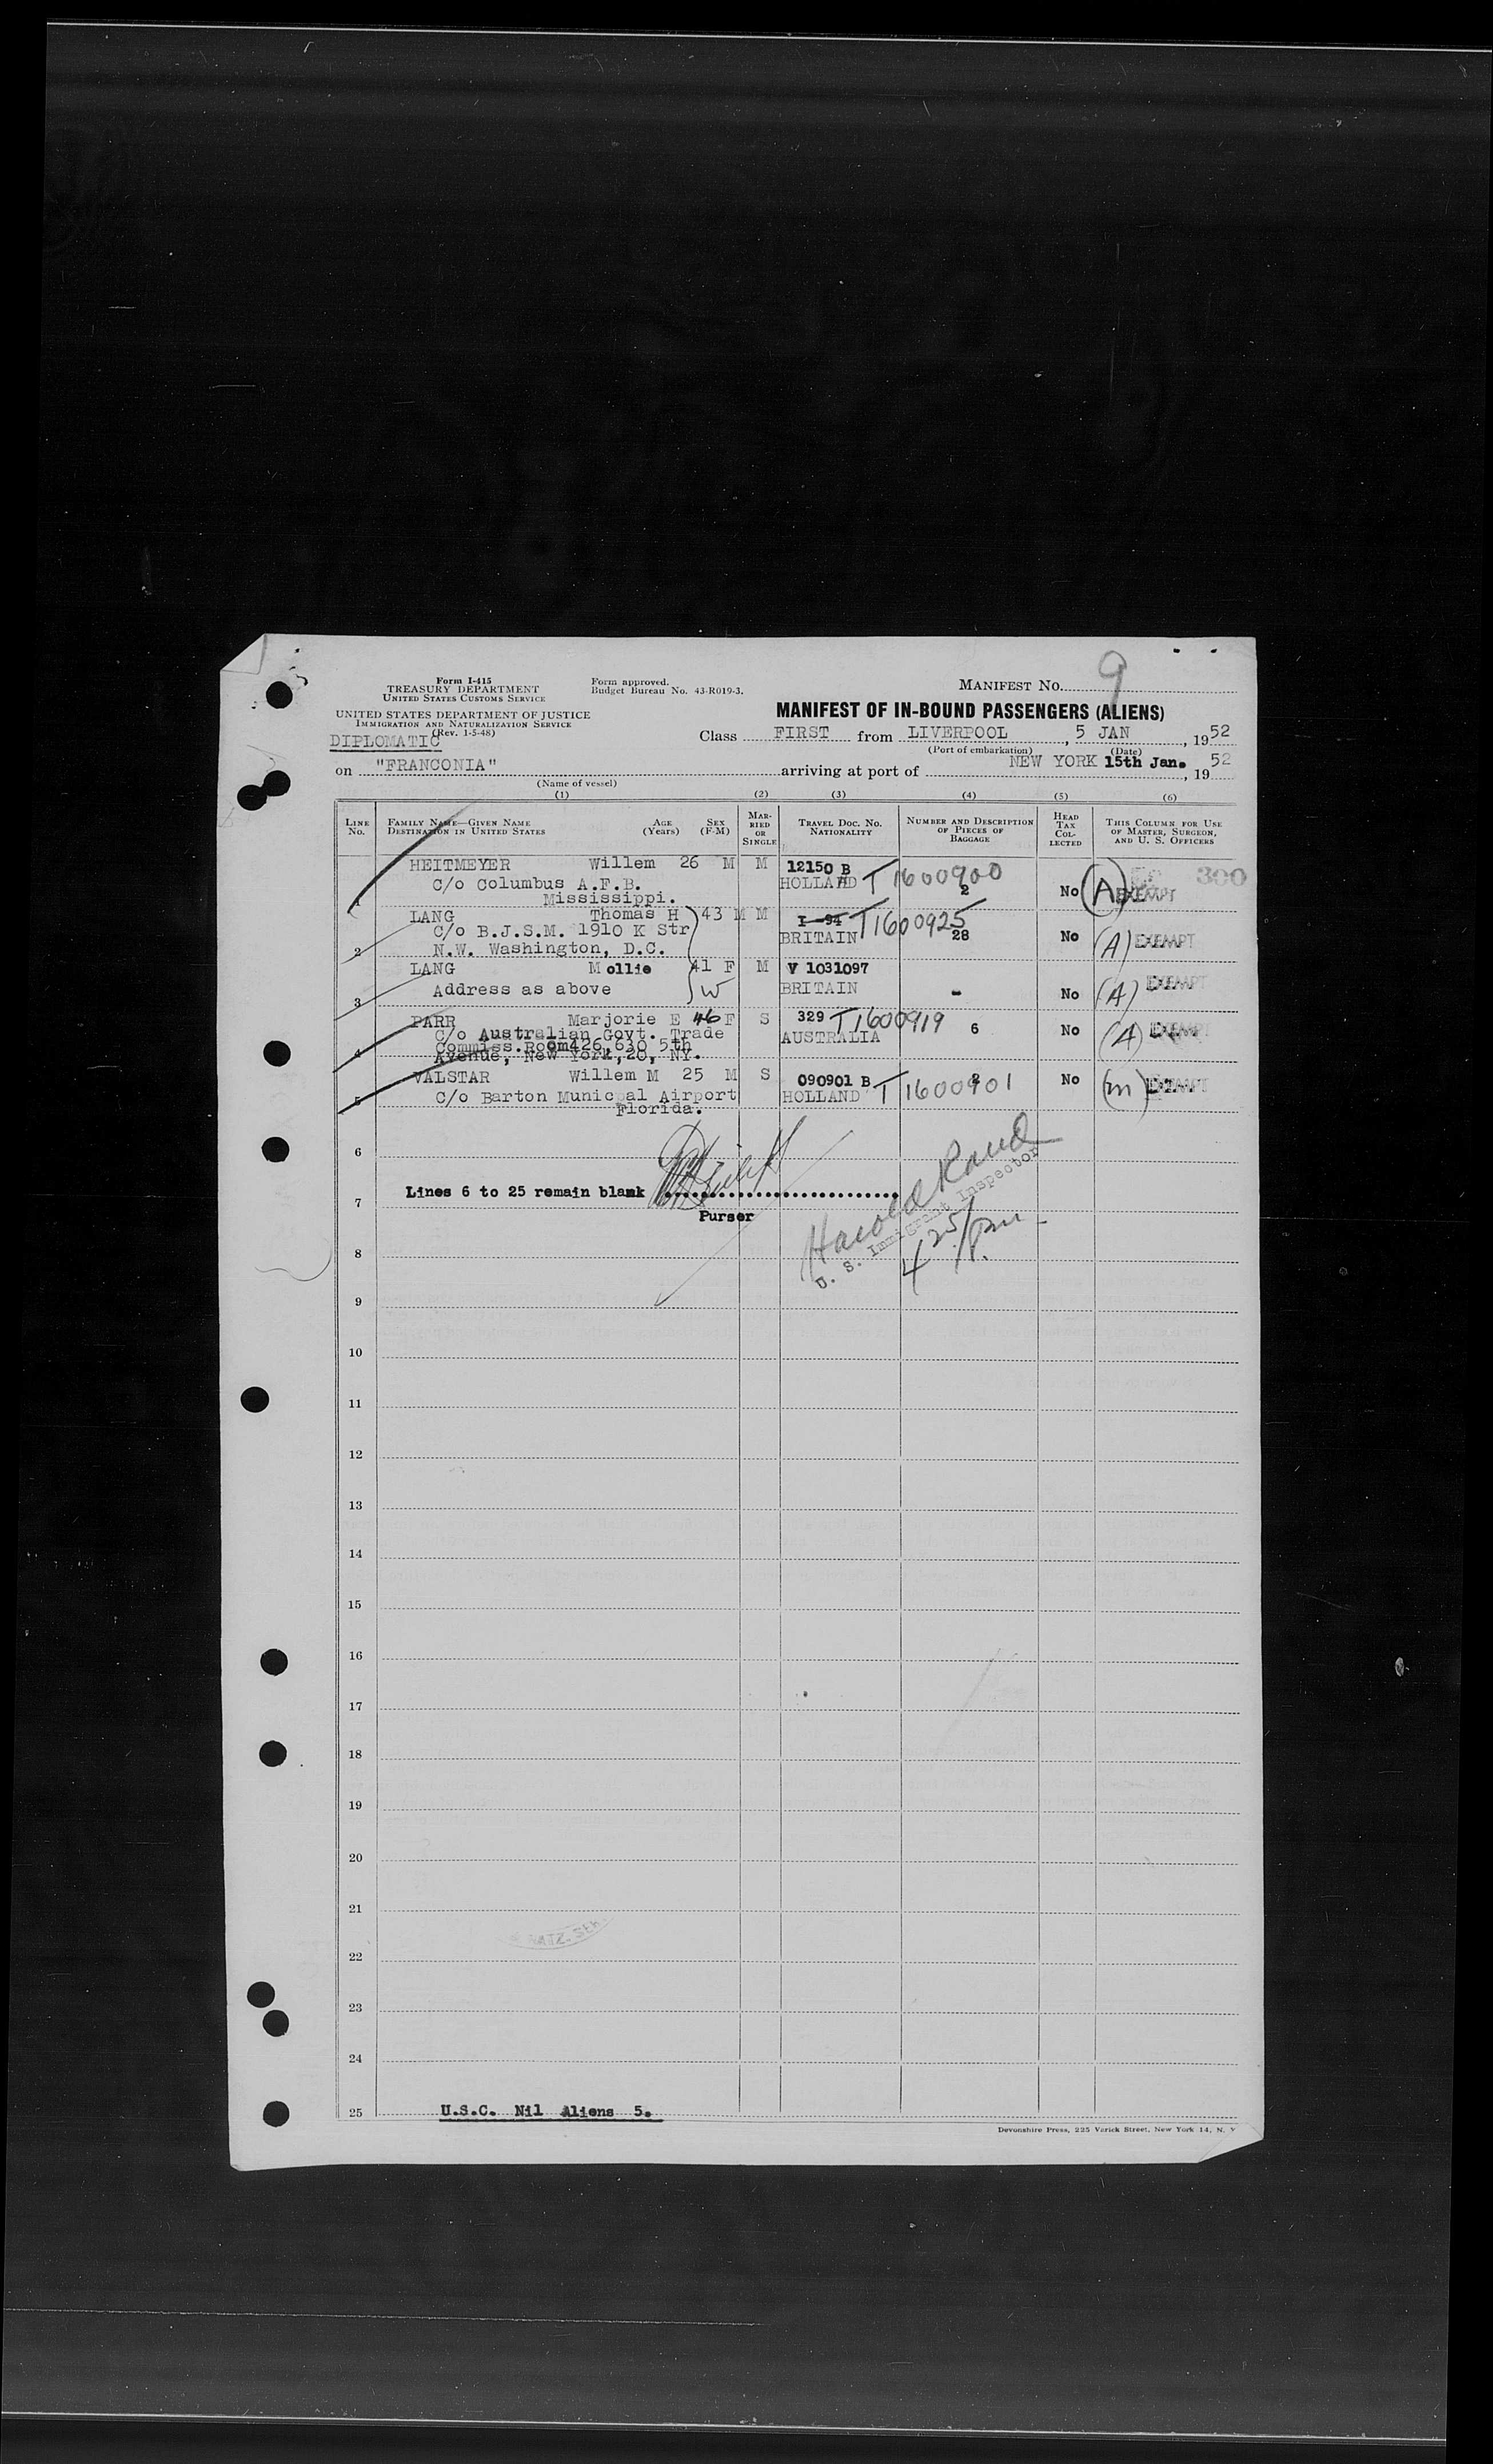 9
Form I-415
TREASURY DEPARTMENT
UNITED STATES CUSTOMS SERVICE
Form approved.
Budget Bureau No. 43-R019-3.
MANIFEST NO.
UNITED STATES DEPARTMENT OF JUSTICE
IMMIGRATION AND NATURALIZATION SERVICE
(Rev. 1-5-48)
MANIFEST OF IN-BOUND PASSENGERS (ALIENS)
DIPLOMATIC
Class FIRST from LIVERPOOL, 5 JAN, 1952
(Port of embarkation) (Date)
on "FRANCONIA" arriving at port of NEW YORK 15th Jan., 1952
(Name of vessel)
(1) (2) (3) (4) (5) (6)
LINE No. FAMILY NAME—GIVEN NAME DESTINATION IN UNITED STATES AGE (Years) SEX (F-M) MARRIED OR SINGLE TRAVEL DOC. NO. NATIONALITY NUMBER AND DESCRIPTION OF PIECES OF BAGGAGE HEAD TAX COLLECTED THIS COLUMN FOR USE OF MASTER, SURGEON, AND U. S. OFFICERS
HEITMEYER Willem 26 M M 12150 B T1600900 300
C/o Columbus A.F.B. HOLLAND 2 No (A) EXEMPT
1 Mississippi.
LANG Thomas H 43 M M I-94 T1600925
C/o B.J.S.M. 1910 K Str BRITAIN 28 No (A) EXEMPT
2 N.W. Washington, D.C.
LANG Mollie 41 F M V 1031097 EXEMPT
Address as above W BRITAIN - No (A)
3
PARR Marjorie E 46 F S 329 T1600919 6 No (A) EXEMPT
C/o Australian Govt. Trade AUSTRALIA
Commiss.Room426,630 5th
4 Avenue, New York,20, NY.
VALSTAR Willem M 25 M S 090901 B T1600901 2 No (m) EXEMPT
C/o Barton Municpal Airport HOLLAND
5 Florida.
6
Lines 6 to 25 remain blank
7
Purser
Harold Rand
U. S. Immigrant Inspector
4 25/pm
8
9
10
11
12
13
14
15
16
17
18
19
20
21
NATZ. SER.
22
23
24
25 U.S.C. Nil Aliens 5.
Devonshire Press, 225 Varick Street, New York 14, N. Y